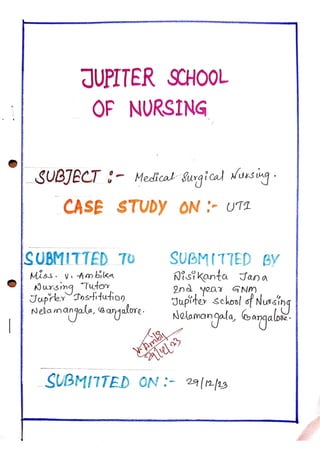 JUPITER SCHOOL
OF NURSING
SUBJECT :- Medical Surgical Nursing.
CASE STUDY ON :- UTI
SUBMITTED TO
Miss. V. Ambika
Nursing Tutor
Jupiter Institution
Nelamangala, Bangalore.
SUBMITTED BY
Nisikanta Jana
2nd year GNM
Jupiter School of Nursing
Nelamangala, Bangalore.
SUBMITTED ON :- 29/12/23